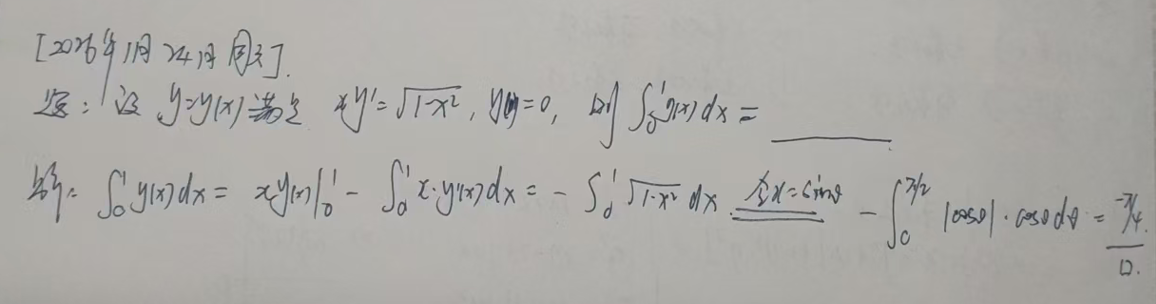 [2026年1月24日 周六].
题: 设 y=y(x)满足 xy'=√(1-x²), y(1)=0, 则 ∫₀¹y(x)dx = ____
解: ∫₀¹ y(x)dx = xy(x)|₀¹ - ∫₀¹ x·y'(x)dx = -∫₀¹ √(1-x²) dx 令x=sinθ = -∫₀^(π/2) |cosθ|·cosθdθ = -π/4. □.